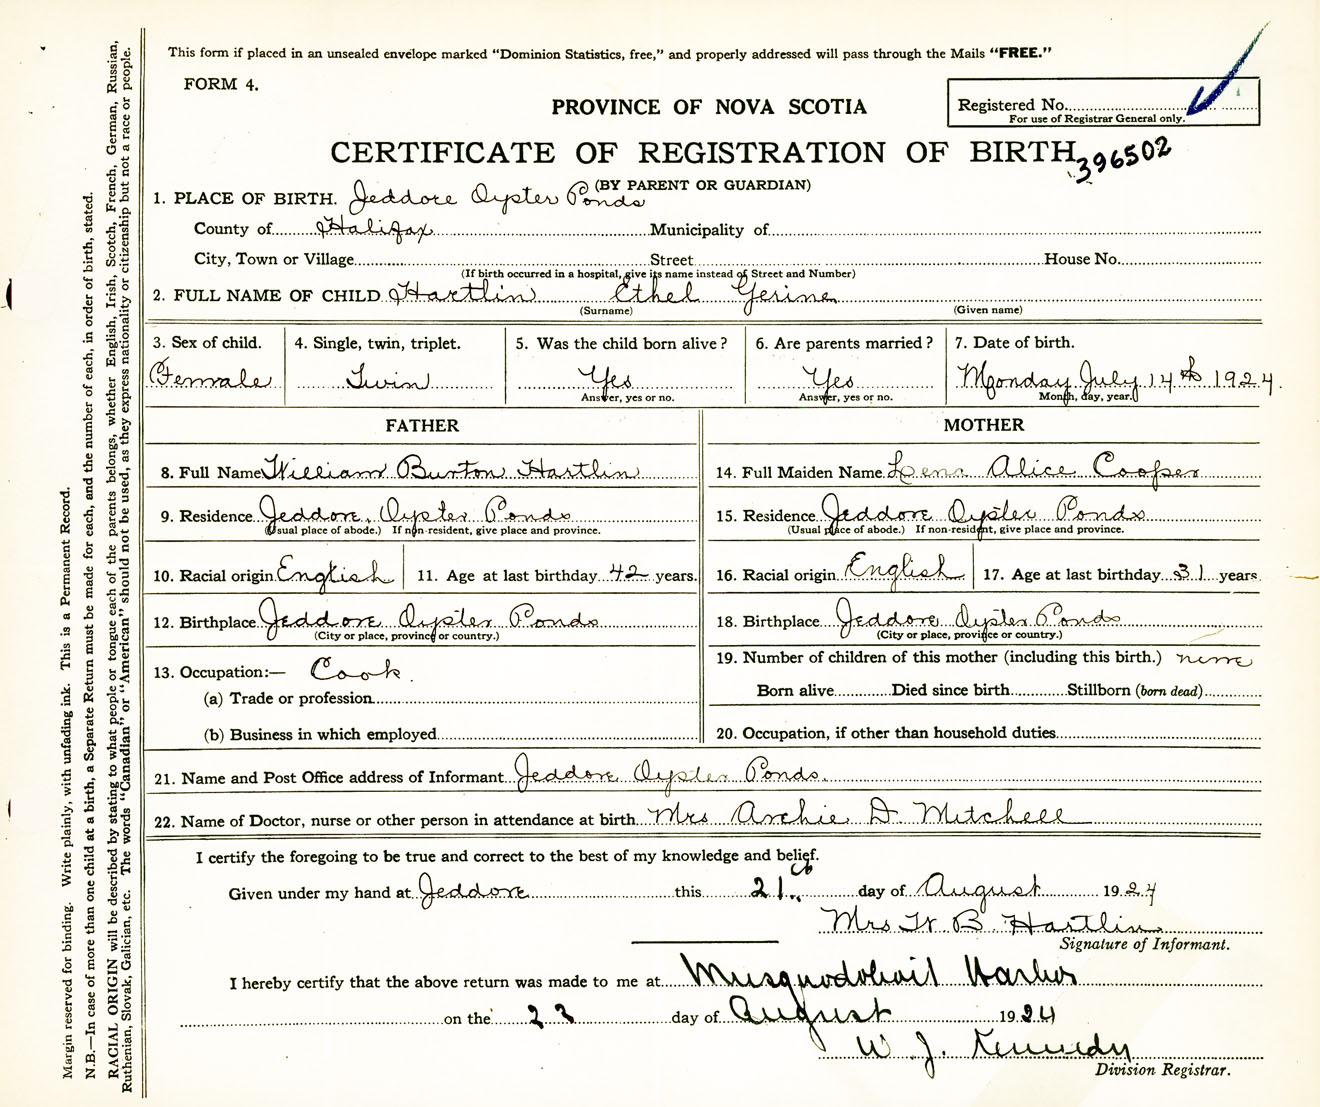 This form if placed in an unsealed envelope marked "Dominion Statistics, free," and properly addressed will pass through the Mails "FREE."
FORM 4.
PROVINCE OF NOVA SCOTIA
Registered No.
For use of Registrar General only.
CERTIFICATE OF REGISTRATION OF BIRTH
396502
(BY PARENT OR GUARDIAN)
1. PLACE OF BIRTH. Jeddore Oyster Ponds
County of Halifax Municipality of
City, Town or Village Street House No.
(If birth occurred in a hospital, give its name instead of Street and Number)
2. FULL NAME OF CHILD Hartlin Ethel Gerine
(Surname) (Given name)
3. Sex of child. 4. Single, twin, triplet. 5. Was the child born alive? 6. Are parents married? 7. Date of birth.
Female Twin Yes Yes Monday July 14th 1924.
Answer, yes or no. Answer, yes or no. Month, day, year.
FATHER MOTHER
8. Full Name William Burton Hartlin 14. Full Maiden Name Lena Alice Cooper
9. Residence Jeddore, Oyster Ponds 15. Residence Jeddore Oyster Ponds
(Usual place of abode.) If non-resident, give place and province. (Usual place of abode.) If non-resident, give place and province.
10. Racial origin English 11. Age at last birthday 42 years. 16. Racial origin English 17. Age at last birthday 31 years
12. Birthplace Jeddore Oyster Ponds 18. Birthplace Jeddore Oyster Ponds
(City or place, province or country.) (City or place, province or country.)
13. Occupation:— Cook. 19. Number of children of this mother (including this birth.)
(a) Trade or profession Born alive Died since birth Stillborn (born dead)
(b) Business in which employed 20. Occupation, if other than household duties
21. Name and Post Office address of Informant Jeddore Oyster Ponds.
22. Name of Doctor, nurse or other person in attendance at birth Mrs Archie D. Mitchell
I certify the foregoing to be true and correct to the best of my knowledge and belief.
Given under my hand at Jeddore this 21 day of August 1924
Mrs W B Hartlin
Signature of Informant.
I hereby certify that the above return was made to me at Musquodoboit Harbor
on the 23 day of August 1924
W. J. Kennedy
Division Registrar.
Margin reserved for binding. Write plainly, with unfading ink. This is a Permanent Record.
N.B.—In case of more than one child at a birth, a Separate Return must be made for each, and the number of each, in order of birth, stated.
RACIAL ORIGIN will be described by stating to what people or tongue each of the parents belongs, whether English, Irish, Scotch, French, German, Russian,
Ruthenian, Slovak, Galician, etc. The words "Canadian" or "American" should not be used, as they express nationality or citizenship but not a race or people.